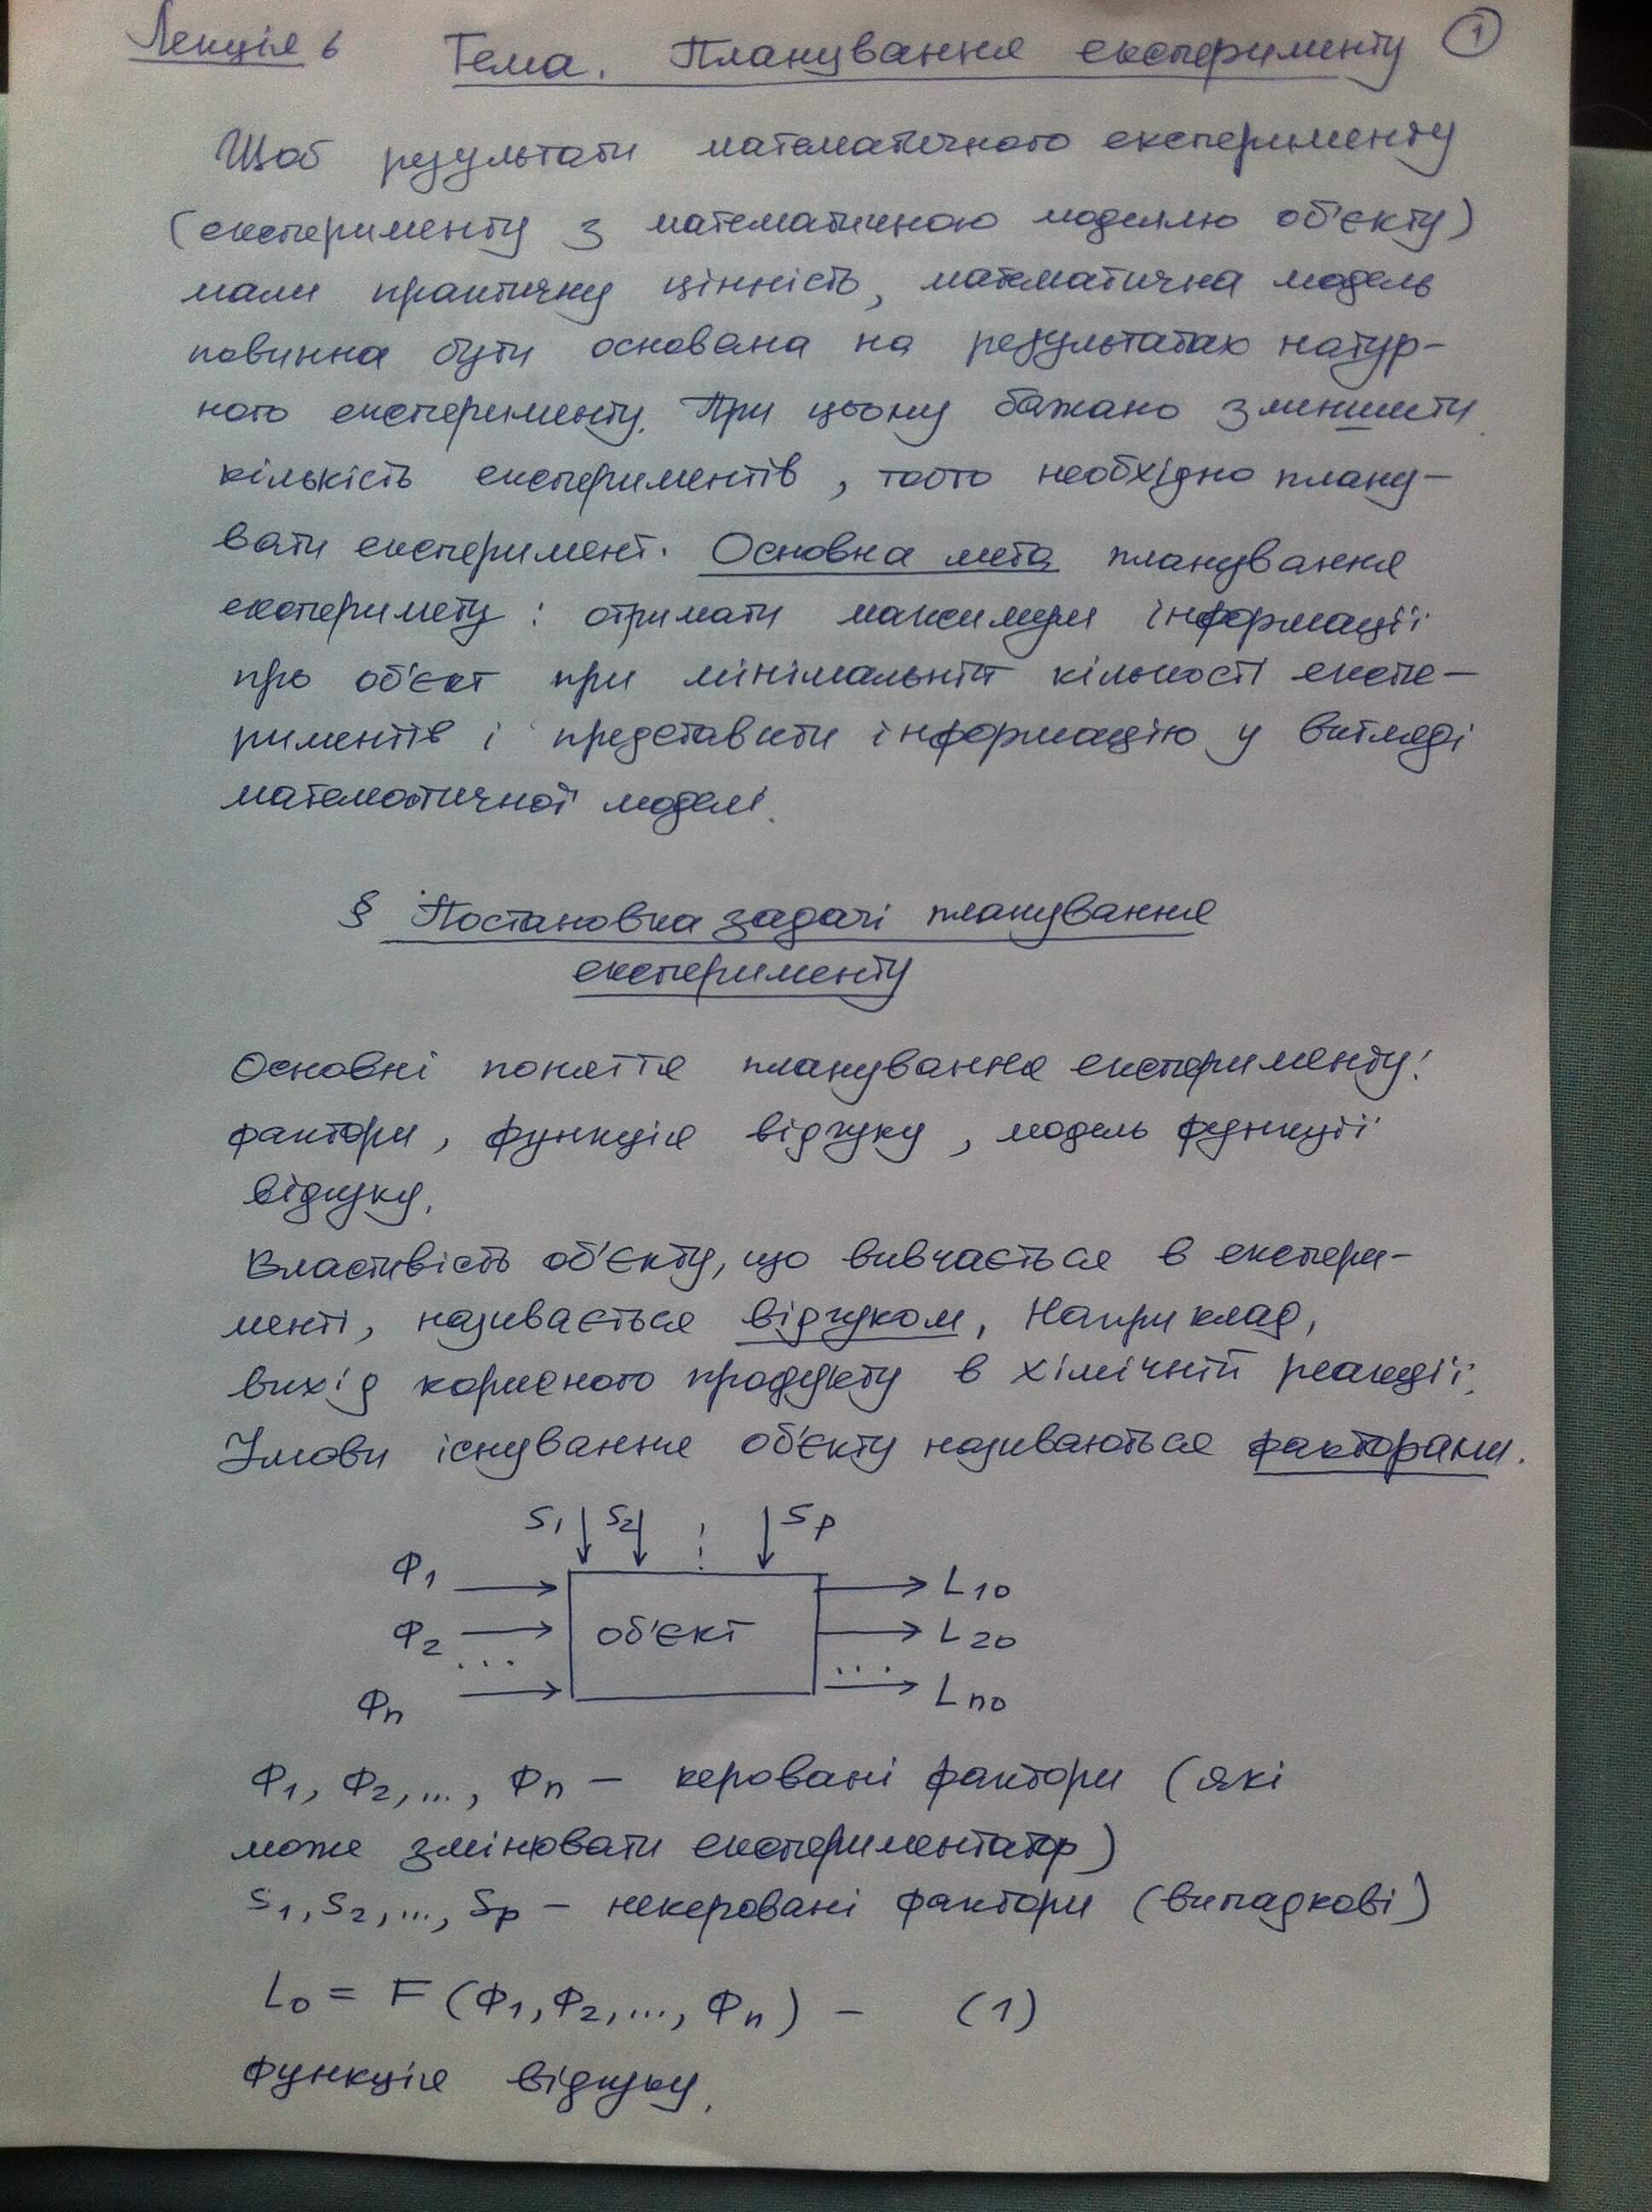 Лекція 6 Тема. Планування експерименту 1
Щоб результати математичного експерименту
(експерименту з математичною моделлю об'єкту)
мали практичну цінність, математична модель
повинна бути основана на результатах натур-
ного експерименту. При цьому бажано зменшити
кількість експериментів, тобто необхідно плану-
вати експеримент. Основна мета планування
експеримету: отримати максимум інформації
про об'єкт при мінімальній кількості експе-
риментів і представити інформацію у вигляді
математичної моделі.
§ Постановка задачі планування
експерименту
Основні поняття планування експерименту:
фактори, функція відгуку, модель функції
відгуку.
Властивість об'єкту, що вивчається в експери-
менті, називається відгуком. Наприклад,
вихід корисного продукту в хімічній реакції.
Умови існування об'єкту називаються факторами.
S1 S2 Sp
Ф1 L10
Ф2 об'єкт L20
... ...
Фn Lno
Ф1, Ф2, ..., Фn – керовані фактори (які
може змінювати експериментатор)
S1, S2, ..., Sp – некеровані фактори (випадкові)
L0 = F (Ф1, Ф2, ..., Фn) – (1)
функція відгуку.